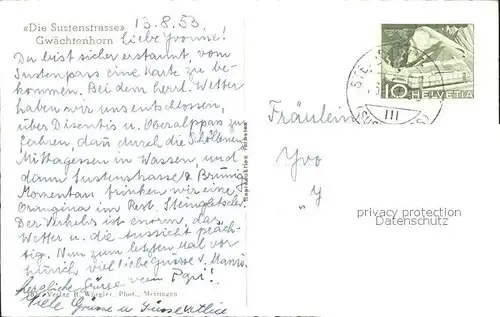 «Die Sustenstrasse»
Gwächtenhorn
13.8.53.
Liebe Yvonne!
Du bist sicher erstaunt, vom
Sustenpass eine Karte zu be-
kommen. Bei dem herrl. Wetter
haben wir uns entschlossen,
über Disentis u. Oberalppass zu
fahren, dann durch die Schöllenen
Mittagessen in Wassen, und
dann Sustenstrasse & Brünig
Momentan trinken wir eine
Orangina im Rest. Steingletscher.
Der Verkehr ist enorm, das
Wetter u. die Aussicht präch-
tig. Nun zum letzten Mal vor
viel liebe Grüsse v. Mami.
herzliche Grüsse vom Papi!
Verlag B. Würgler, Phot., Meiringen
Viele Grüsse u.
10 HELVETIA
III
Fräulein
Yvo
Y
privacy protection